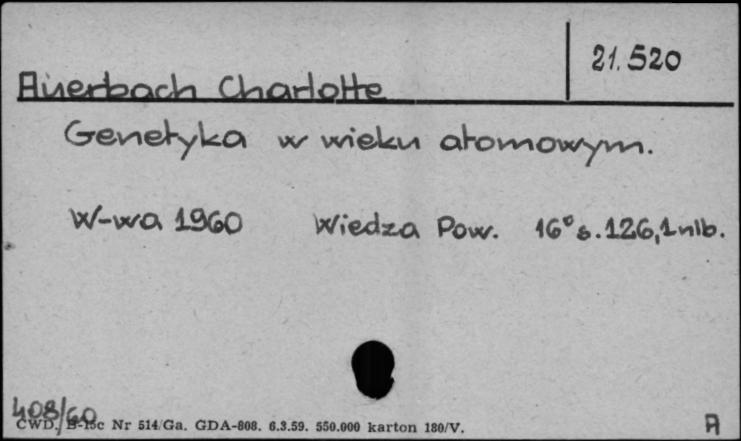 21.520
Auerbach Charlotte
Genetyka w wieku atomowym.
W-wa 1960 Wiedza Pow. 16° s. 126, 1 nlb.
408/60
CWD. B-15c Nr 514/Ga. GDA-808. 6.3.59. 550.000 karton 180/V.
A